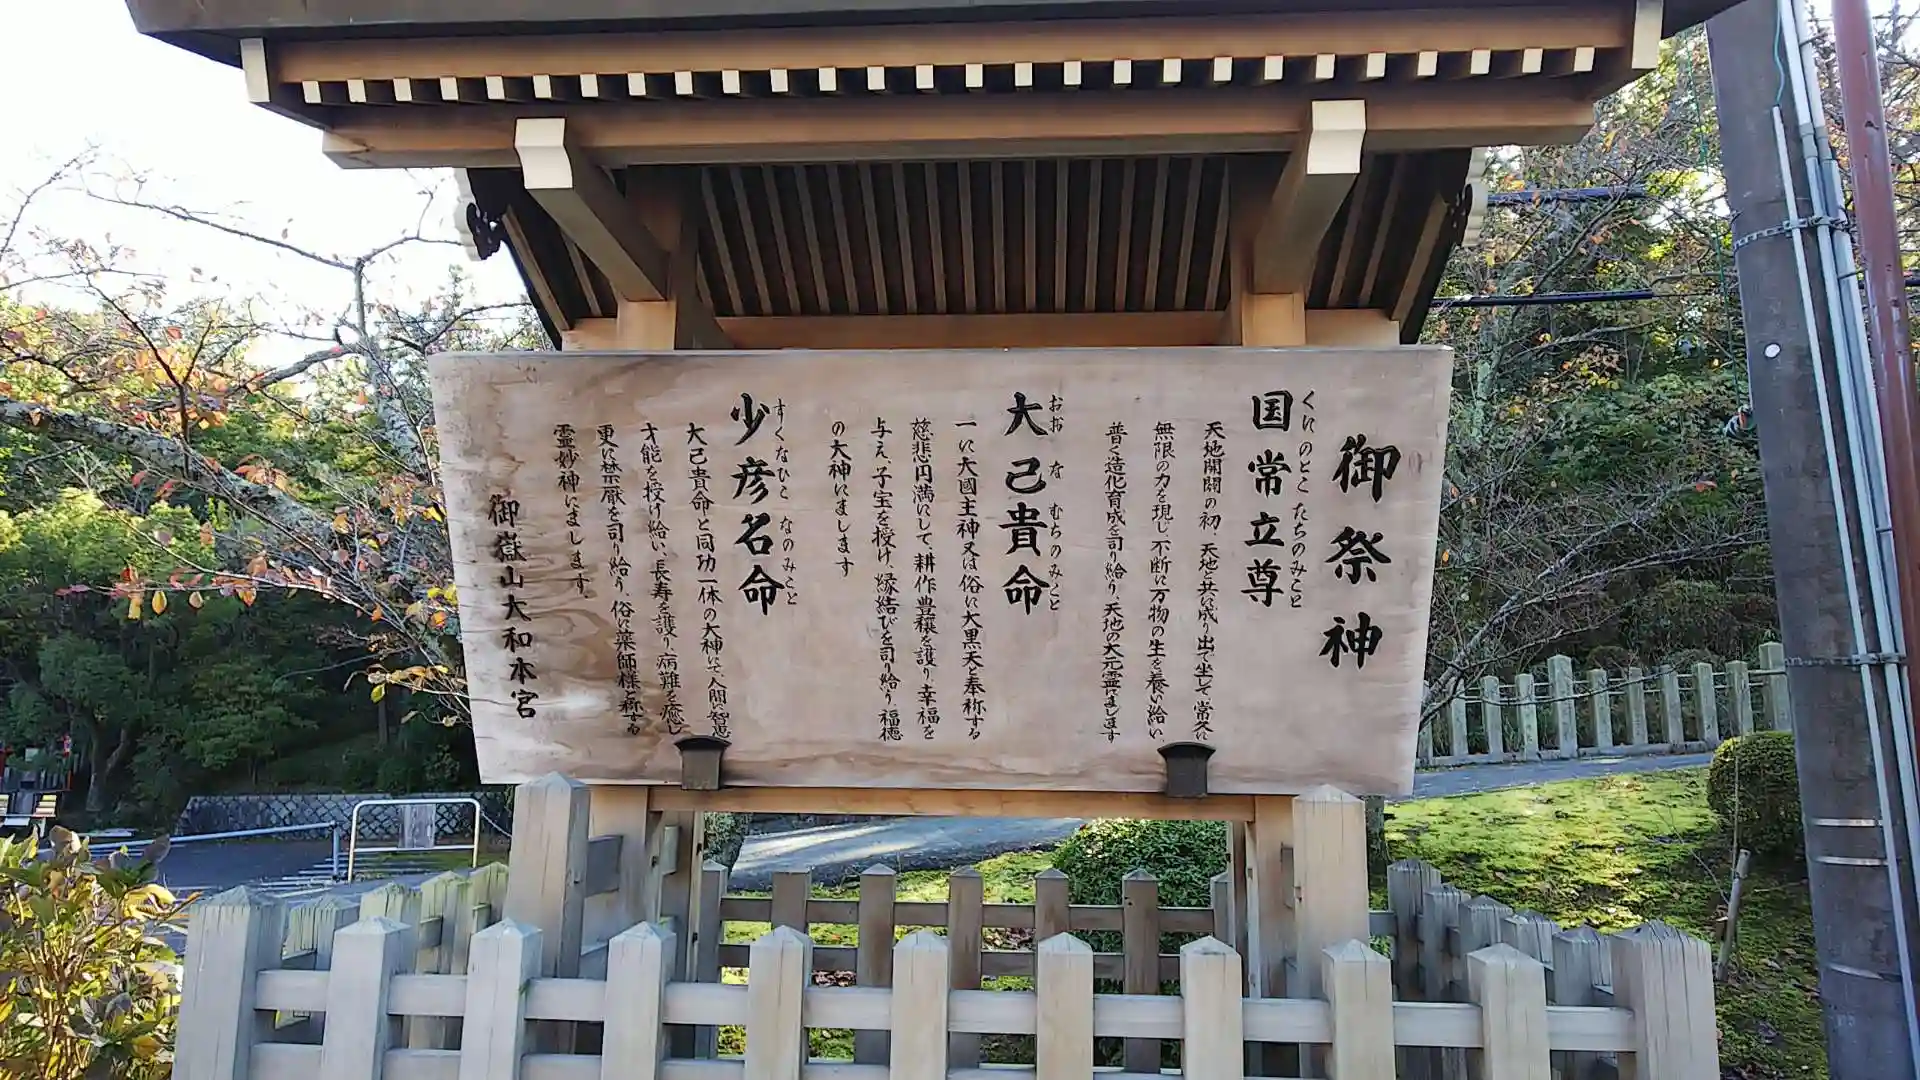 御祭神
国常立尊
くにのとこたちのみこと
天地開闢の初、天地と共に成り出で坐して、常久に
無限の力を現じ、不断に万物の生を養い給い、
普く造化育成を司り給う、天地の大元霊にまします
大己貴命
おおなむちのみこと
一に大國主神又は俗に大黒天と奉称する
慈悲円満にして、耕作豊穣を護り、幸福を
与え、子宝を授け、縁結びを司り給う、福徳
の大神にまします
少彦名命
すくなひこなのみこと
大己貴命と同功一体の大神にて、人間に智恵
才能を授け給い、長寿を護り、病難を癒し
更に禁厭を司り給う、俗に薬師様と称する
霊妙神にまします。
御嶽山大和本宮